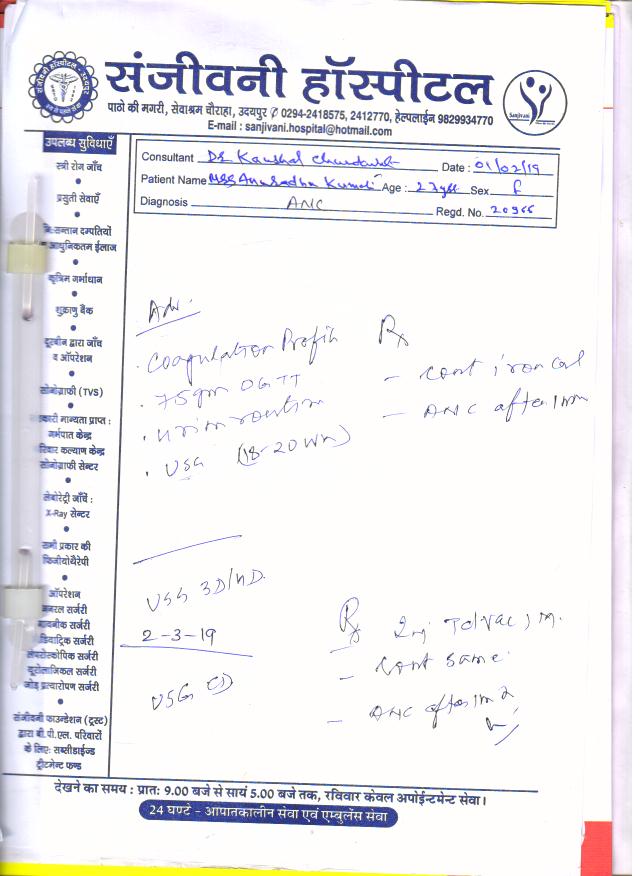 संजीवनी हॉस्पीटल
पाठो की मगरी, सेवाश्रम चौराहा, उदयपुर ✆ 0294-2418575, 2412770, हेल्पलाईन 9829934770
E-mail : sanjivani.hospital@hotmail.com
Sanjivani
उपलब्ध सुविधाएँ
स्त्री रोग जाँच
प्रसुती सेवाएँ
नि:सन्तान दम्पतियों
आधुनिकतम ईलाज
कृत्रिम गर्भाधान
शुक्राणु बैंक
दूरबीन द्वारा जाँच
व ऑपरेशन
सोनोग्राफी (TVS)
मान्यता प्राप्त :
गर्भपात केन्द्र
कल्याण केन्द्र
सोनोग्राफी सेन्टर
लेबोरेट्री जाँचें :
X-Ray सेन्टर
सभी प्रकार की
फिजीयोथैरेपी
ऑपरेशन
जनरल सर्जरी
सर्जरी
सर्जरी
लेप्रोस्कोपिक सर्जरी
यूरोलाजिकल सर्जरी
जोड़ प्रत्यारोपण सर्जरी
संजीवनी फाउन्डेशन (ट्रस्ट)
द्वारा बी.पी.एल. परिवारों
के लिए: सब्सीडाईज्ड
ट्रीटमेन्ट फण्ड
Consultant Dr Kaushal Date : 01/02/19
Patient Name Mrs Anuradha Kumari Age : 27yrs Sex F
Diagnosis ANC Regd. No. 20966
Adv.
. Coagulation Profile Rx
. 75gm OGTT - cont iron cal
. urine routine - ANC after 1m
. USG (18-20 wk)
USG 3D/4D.
2-3-19 Rx Inj Tdvac im.
- cont same
USG CD
- ANC after 1m
देखने का समय : प्रात: 9.00 बजे से सायं 5.00 बजे तक, रविवार केवल अपोईन्टमेन्ट सेवा।
24 घण्टे - आपातकालीन सेवा एवं एम्बुलेंस सेवा